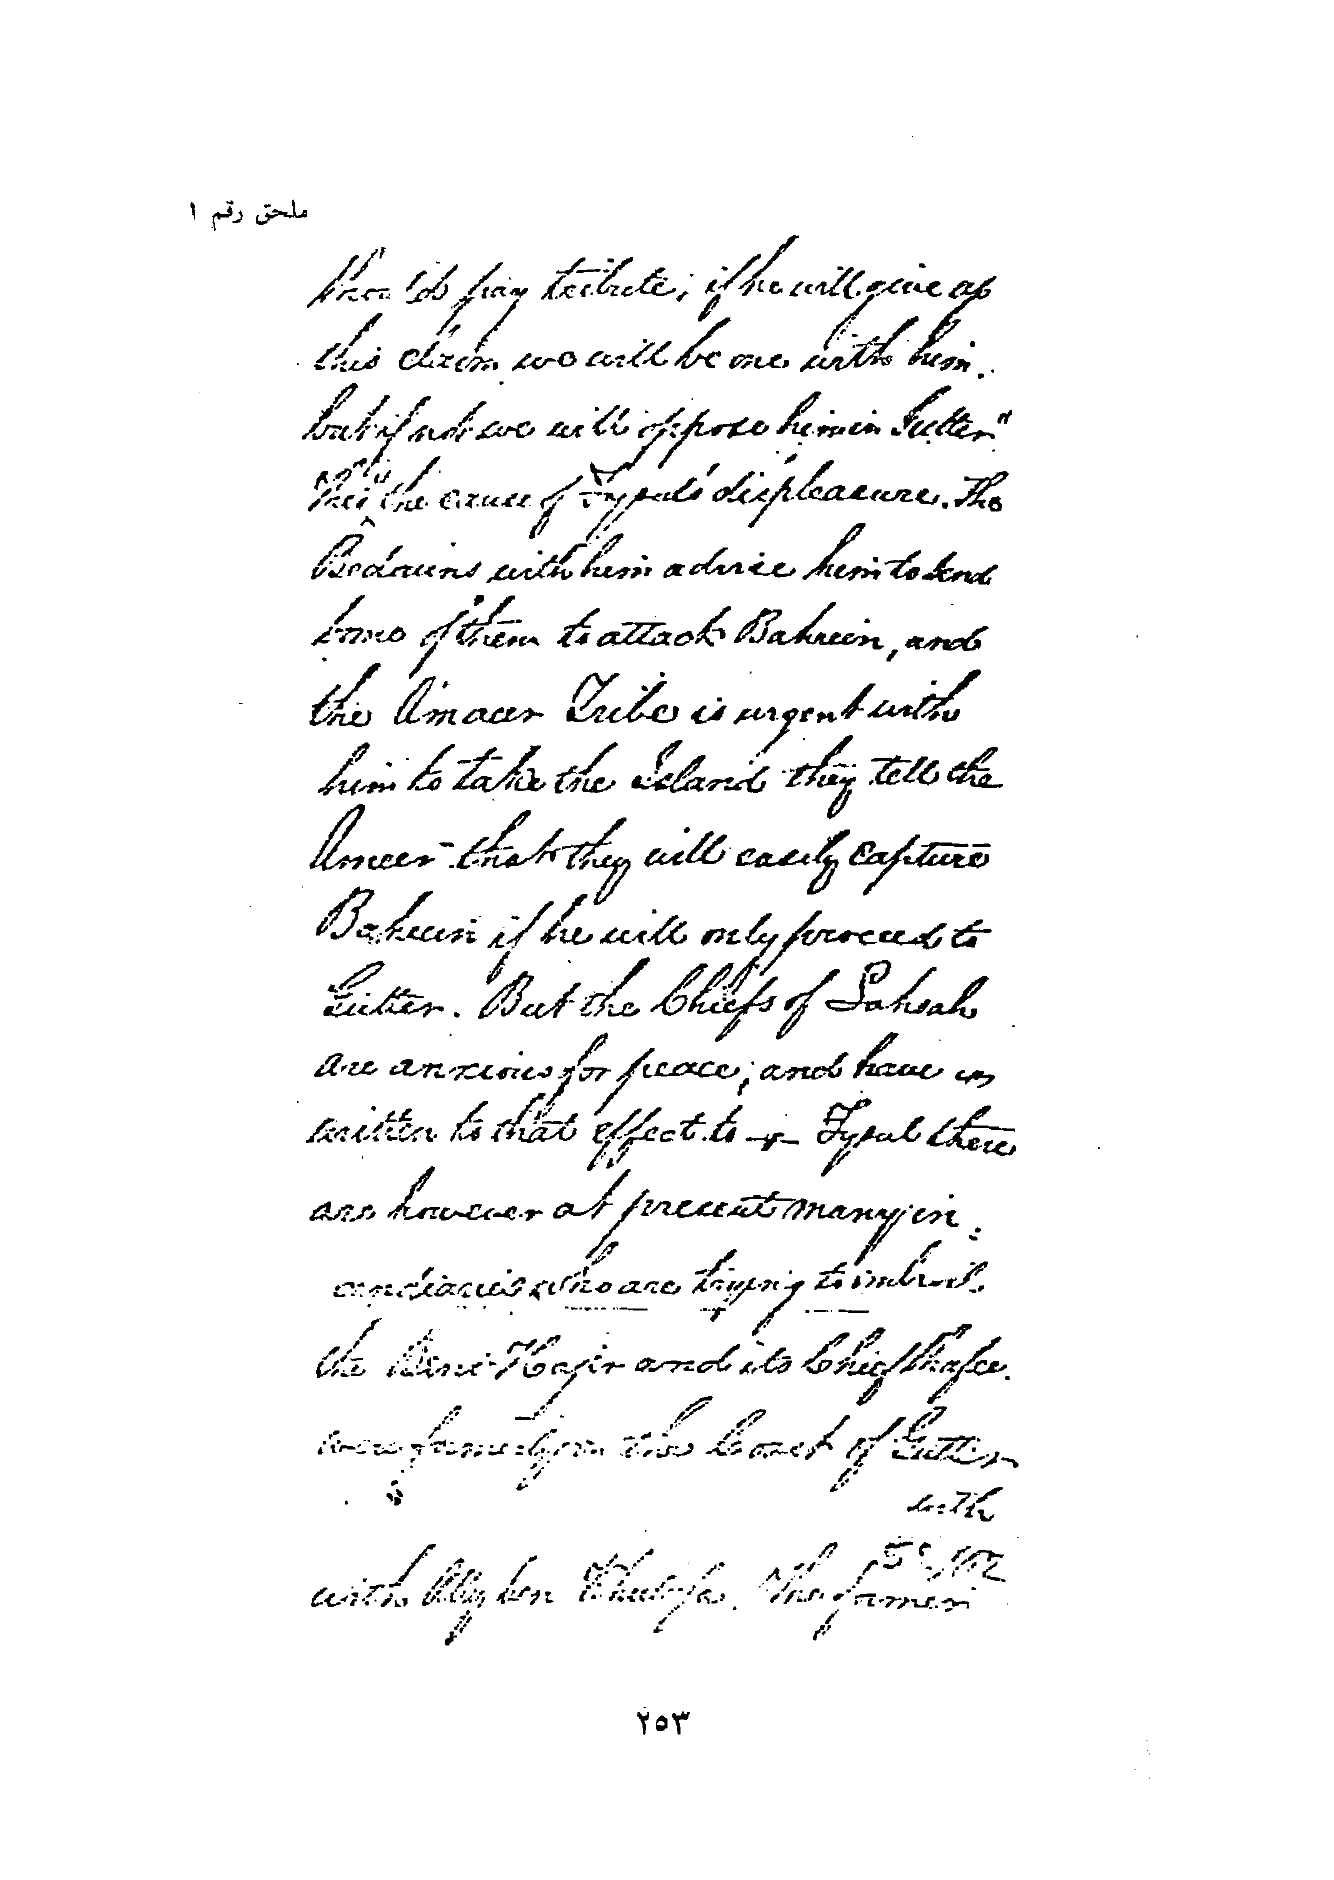 ملحق رقم ١
should pay tribute; if he will give up
this claim we will be one with him.
but if not we will oppose him in Gutter"
This is the cause of Fysul's displeasure. The
Bedouins with him advise him to send
some of them to attack Bahrein, and
the Amaer Tribe is urgent with
him to take the Island they tell the
Ameer that they will easily capture
Bahrein if he will only proceed to
Gutter. But the Chiefs of Lahsah
are anxious for peace; and have
written to that effect to Fysul there
are however at present many in
cendiaries who are trying to embroil
the Beni Hajir and its Chief Shafee.
were formerly on the Coast of Gutter
with
with Ally ben Khalifa. The former
٢٥٣